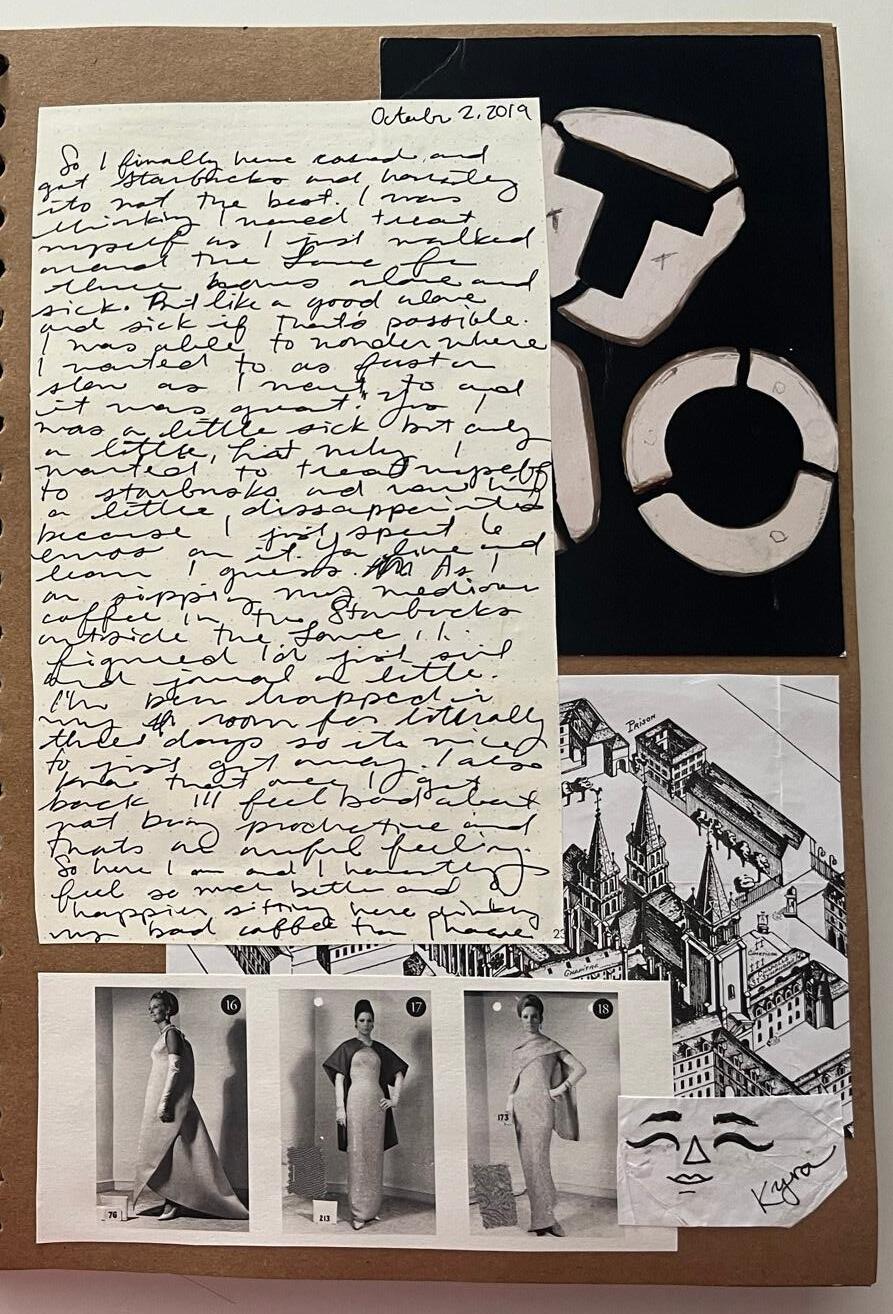 October 2, 2019
So I finally have caved and
got starbucks and honestly
its not the best. I was
thinking I need treat
myself as I just walked
around the Louvre for
three hours alone and
sick. But like a good alone
and sick if that's possible.
I was able to wonder where
I wanted to as fast or
slow as I want to and
it was great. Yes I
was a little sick but only
a little, but I
wanted to treat myself
to starbucks and now
a little dissappointed
because I just spent 6
euros on it. Ya live and
learn I guess. As I
am sipping my mediocre
coffee in the Starbucks
outside the Louvre I
figured I'd just sit
and journal a little.
I've been trapped in
my room for litterally
three days so its nice
to just get away. I also
know that once I get
back I'll feel bad about
not being productive and
thats an awful feeling.
So here I am and I honestly
feel so much better and
happier sitting here drinking
my bad coffee than I have
23
PRISON
16
17
18
76
213
173
Kyra